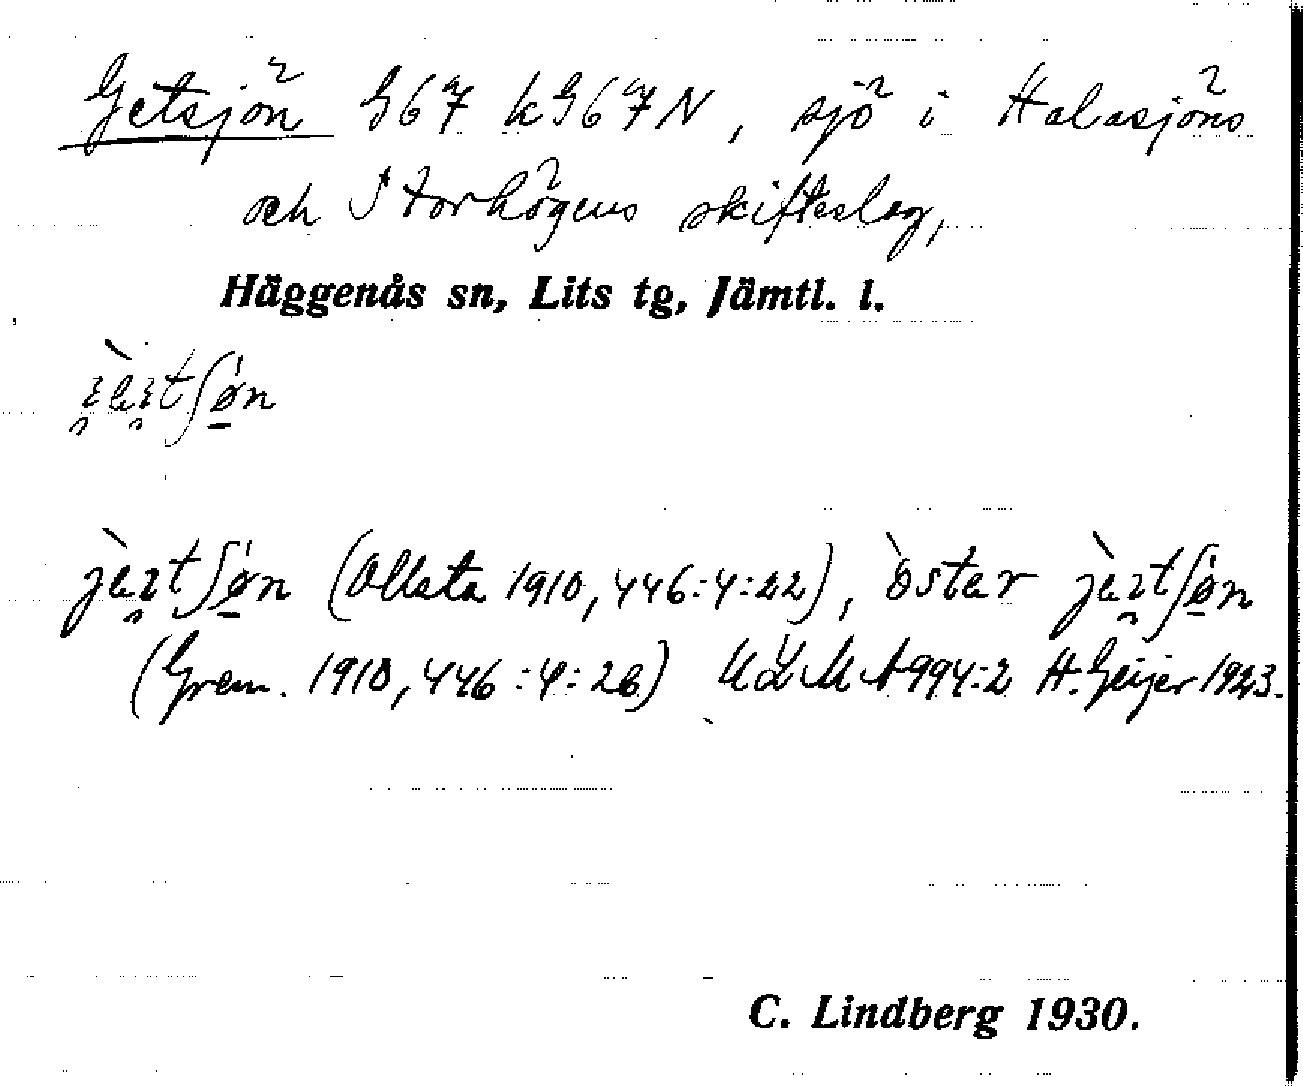 Getsjön G67 kG67N, sjö i Halasjöns
och Storhögens skifteslag,
Häggenås sn, Lits tg, Jämtl. l.
(Ollsta 1910, 446:4:22), öster
(Gren. 1910, 446:4:26) ULMA 994:2 H. Geijer 1923.
C. Lindberg 1930.